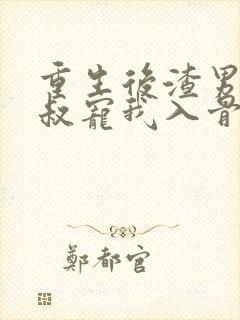 重生後渣男
叔寵我入骨
鄭都官